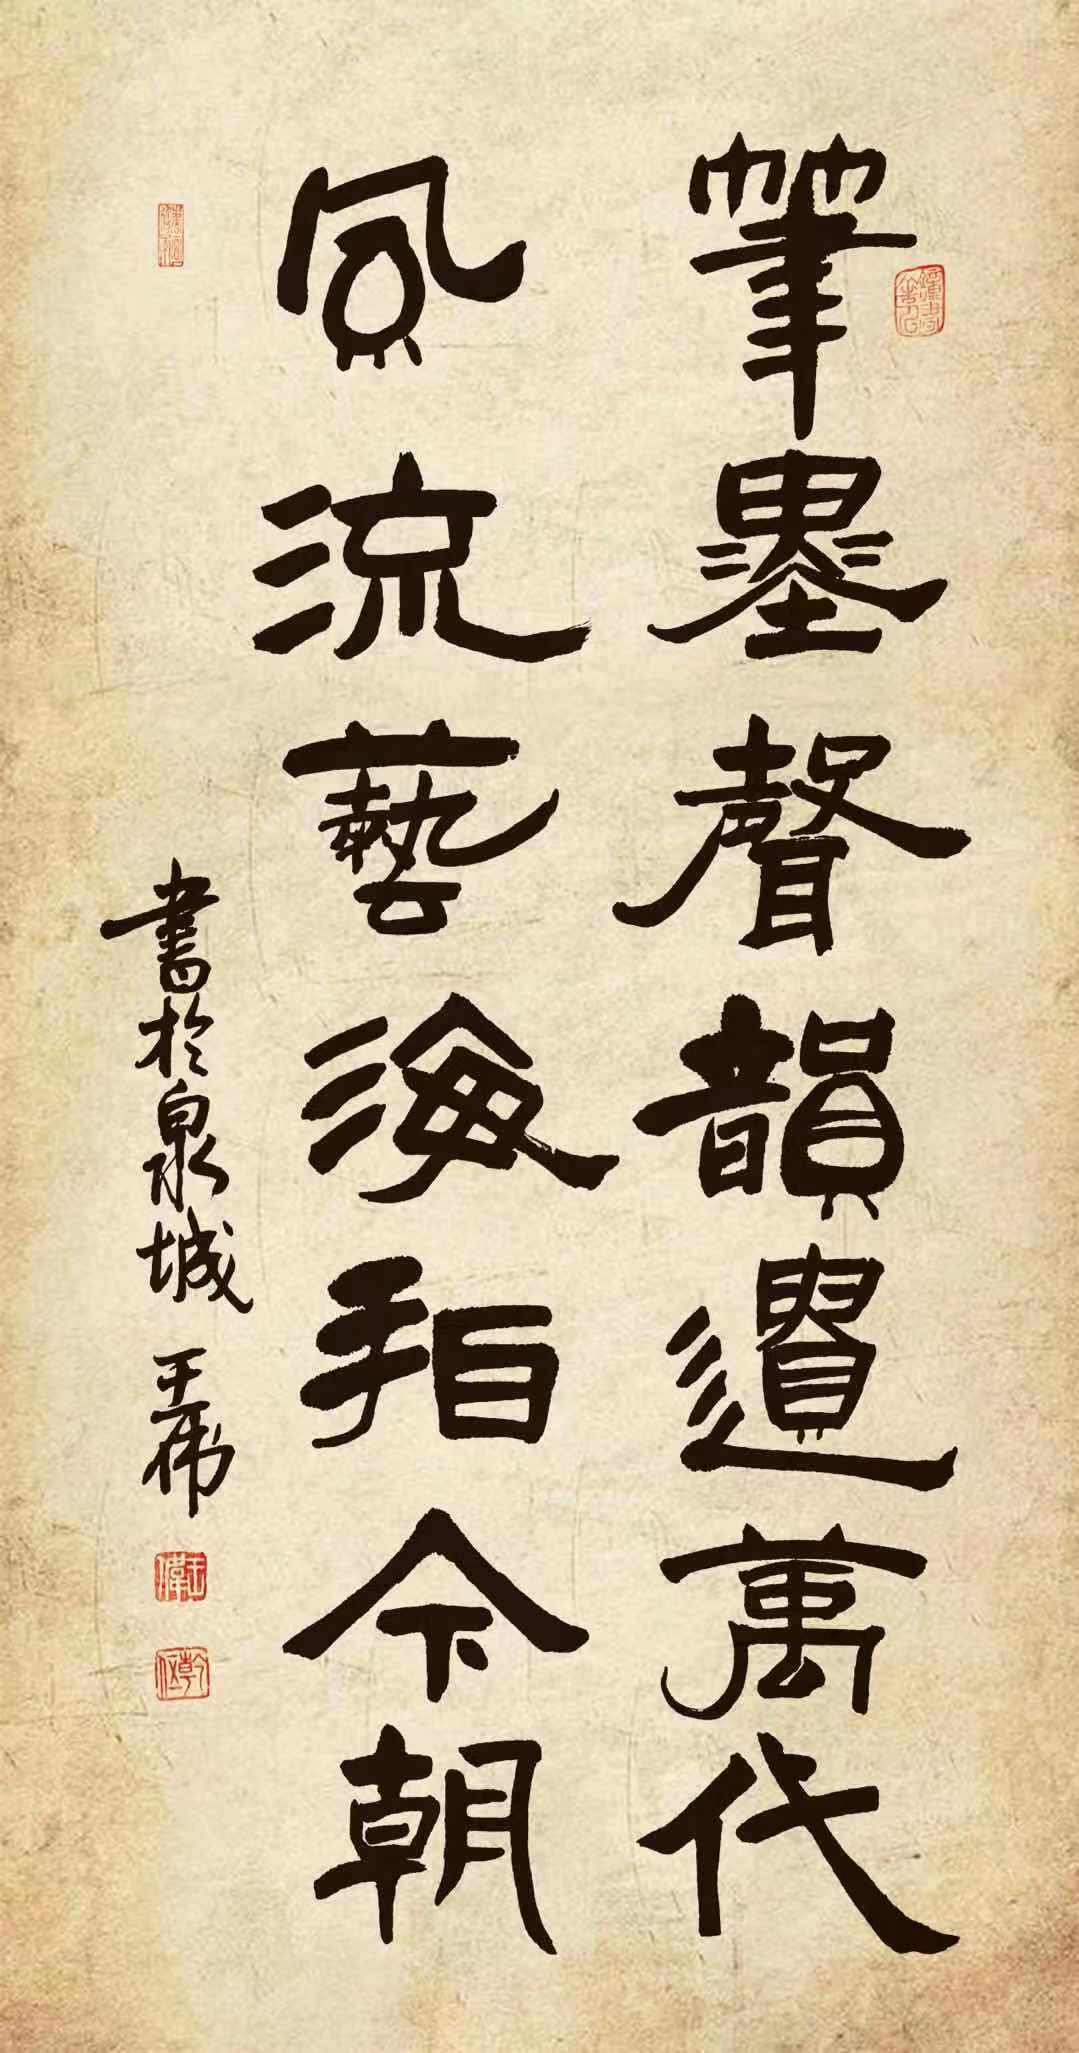 筆墨聲韻遺萬代
風流藝海拍今朝
書於泉城 王伟
王偉